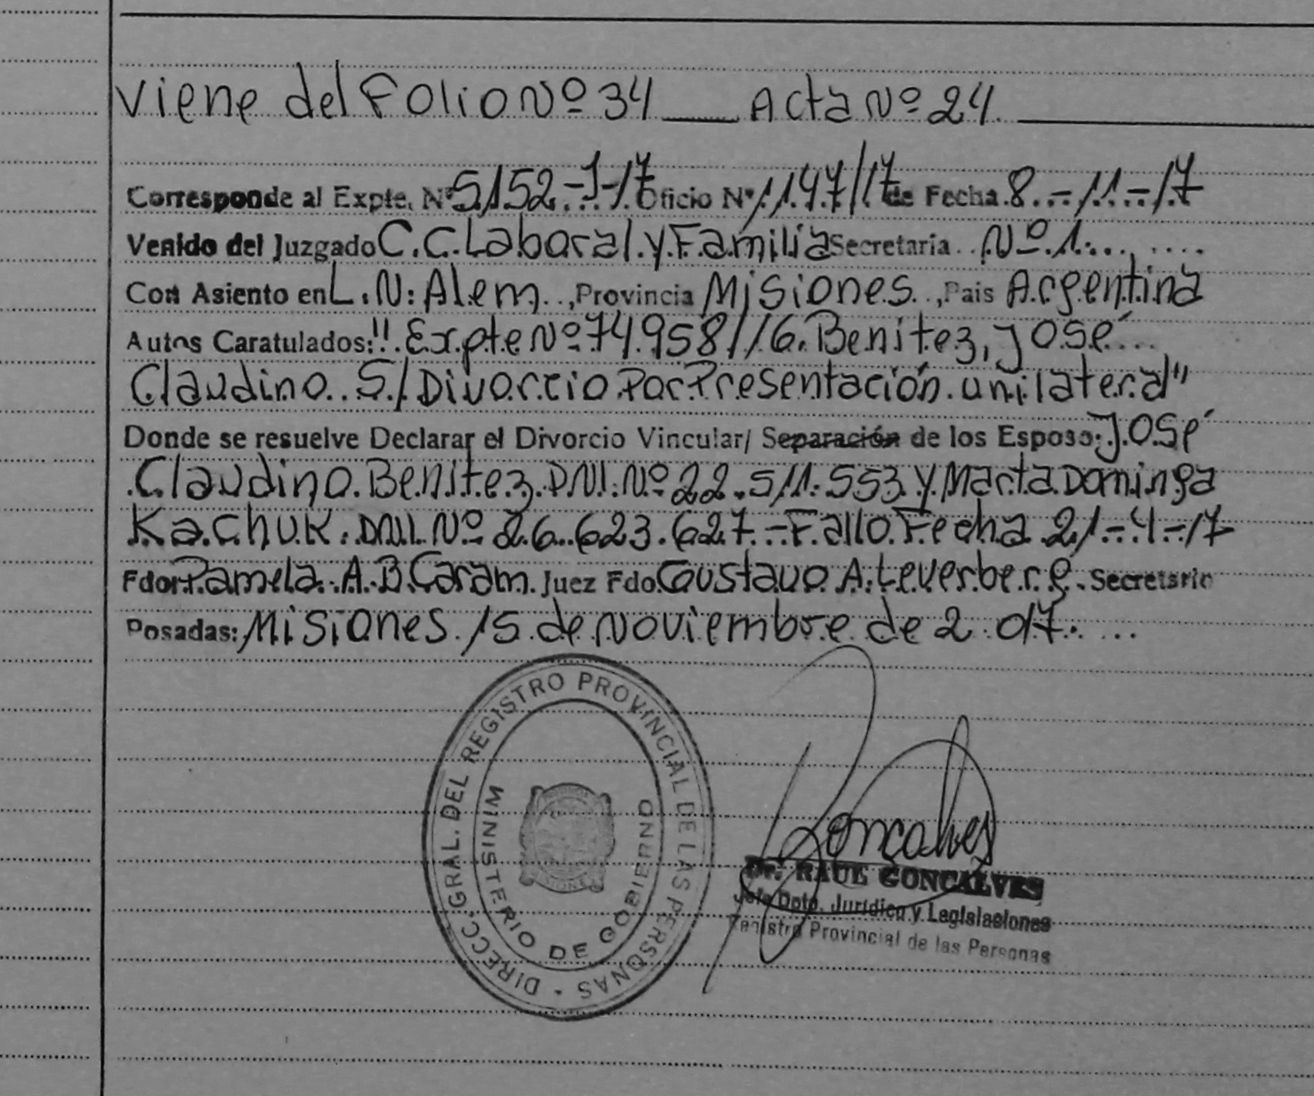 Viene del Folio Nº 34 ___ Acta Nº 24 ___
Corresponde al Expte. Nº 5152-J-17 Oficio Nº 1147/17 de Fecha 8.-11.-17
Venido del Juzgado C.C. Laboral y Familia Secretaria Nº 1
Con Asiento en L.N. Alem, Provincia Misiones, Pais Argentina
Autos Caratulados: "Expte Nº 74958/16 Benitez, José
Claudino S/ Divorcio Por Presentación unilateral"
Donde se resuelve Declarar el Divorcio Vincular/ Separación de los Esposo: José
Claudino Benitez DNI Nº 22.511.553 y Marta Dominga
Kachuk. DNI. Nº 26.623.627.- Fallo Fecha 21-4-17
Fdor Pamela A.B Caram. Juez Fdo Gustavo A. Leverberg. Secretario
Posadas: Misiones 15 de Noviembre de 2.017.
DIRECC. GRAL. DEL REGISTRO PROVINCIAL DE LAS PERSONAS
MINISTERIO DE GOBIERNO
Goncalves
Dr. RAUL GONCALVES
Jefe Dpto. Jurídico y Legislaciones
Registro Provincial de las Personas